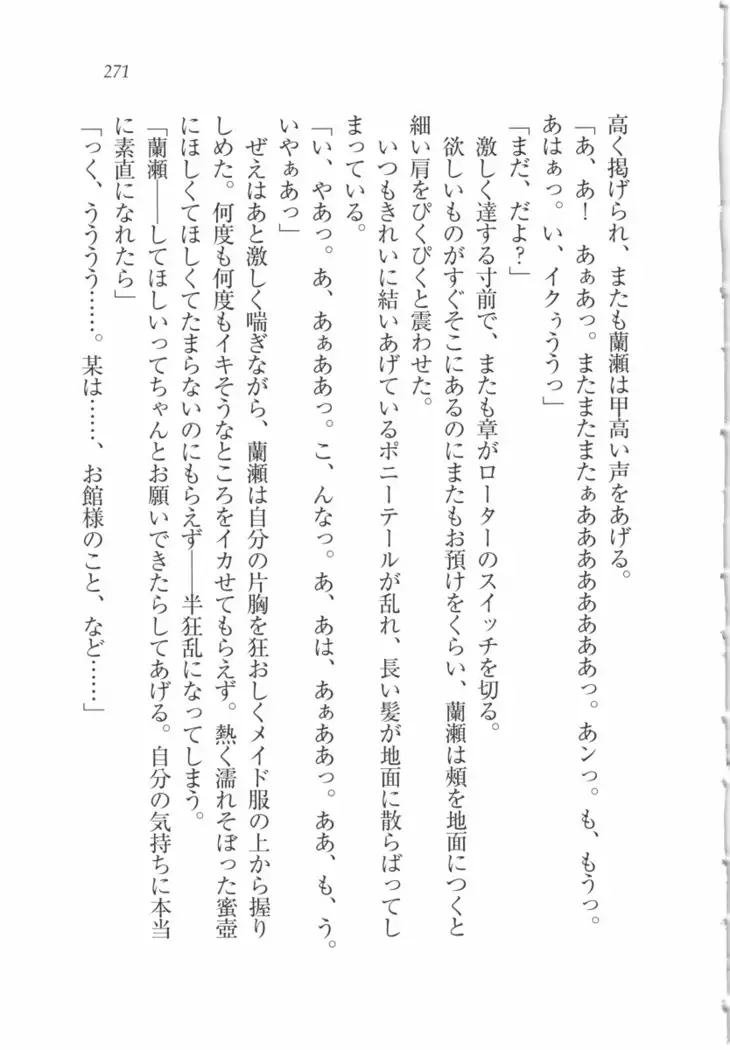 271
高く掲げられ、またも蘭瀬は甲高い声をあげる。
「あ、あ！　あぁあっ。またまたまたぁああああああああっ。あンっ。も、もうっ。
あはぁっ。い、イクぅううっ」
「まだ、だよ？」
激しく達する寸前で、またも章がローターのスイッチを切る。
欲しいものがすぐそこにあるのにまたもお預けをくらい、蘭瀬は頰を地面につくと
細い肩をぴくぴくと震わせた。
いつもきれいに結いあげているポニーテールが乱れ、長い髪が地面に散らばってし
まっている。
「い、やあっ。あ、あぁああっ。こ、んなっ。あ、あは、あぁああっ。ああ、も、う。
いやぁあっ」
ぜえはあと激しく喘ぎながら、蘭瀬は自分の片胸を狂おしくメイド服の上から握り
しめた。何度も何度もイキそうなところをイカせてもらえず。熱く濡れそぼった蜜壺
にほしくてほしくてたまらないのにもらえず――半狂乱になってしまう。
「蘭瀬――してほしいってちゃんとお願いできたらしてあげる。自分の気持ちに本当
に素直になれたら」
「っく、うううう……。某は……、お館様のこと、など……」